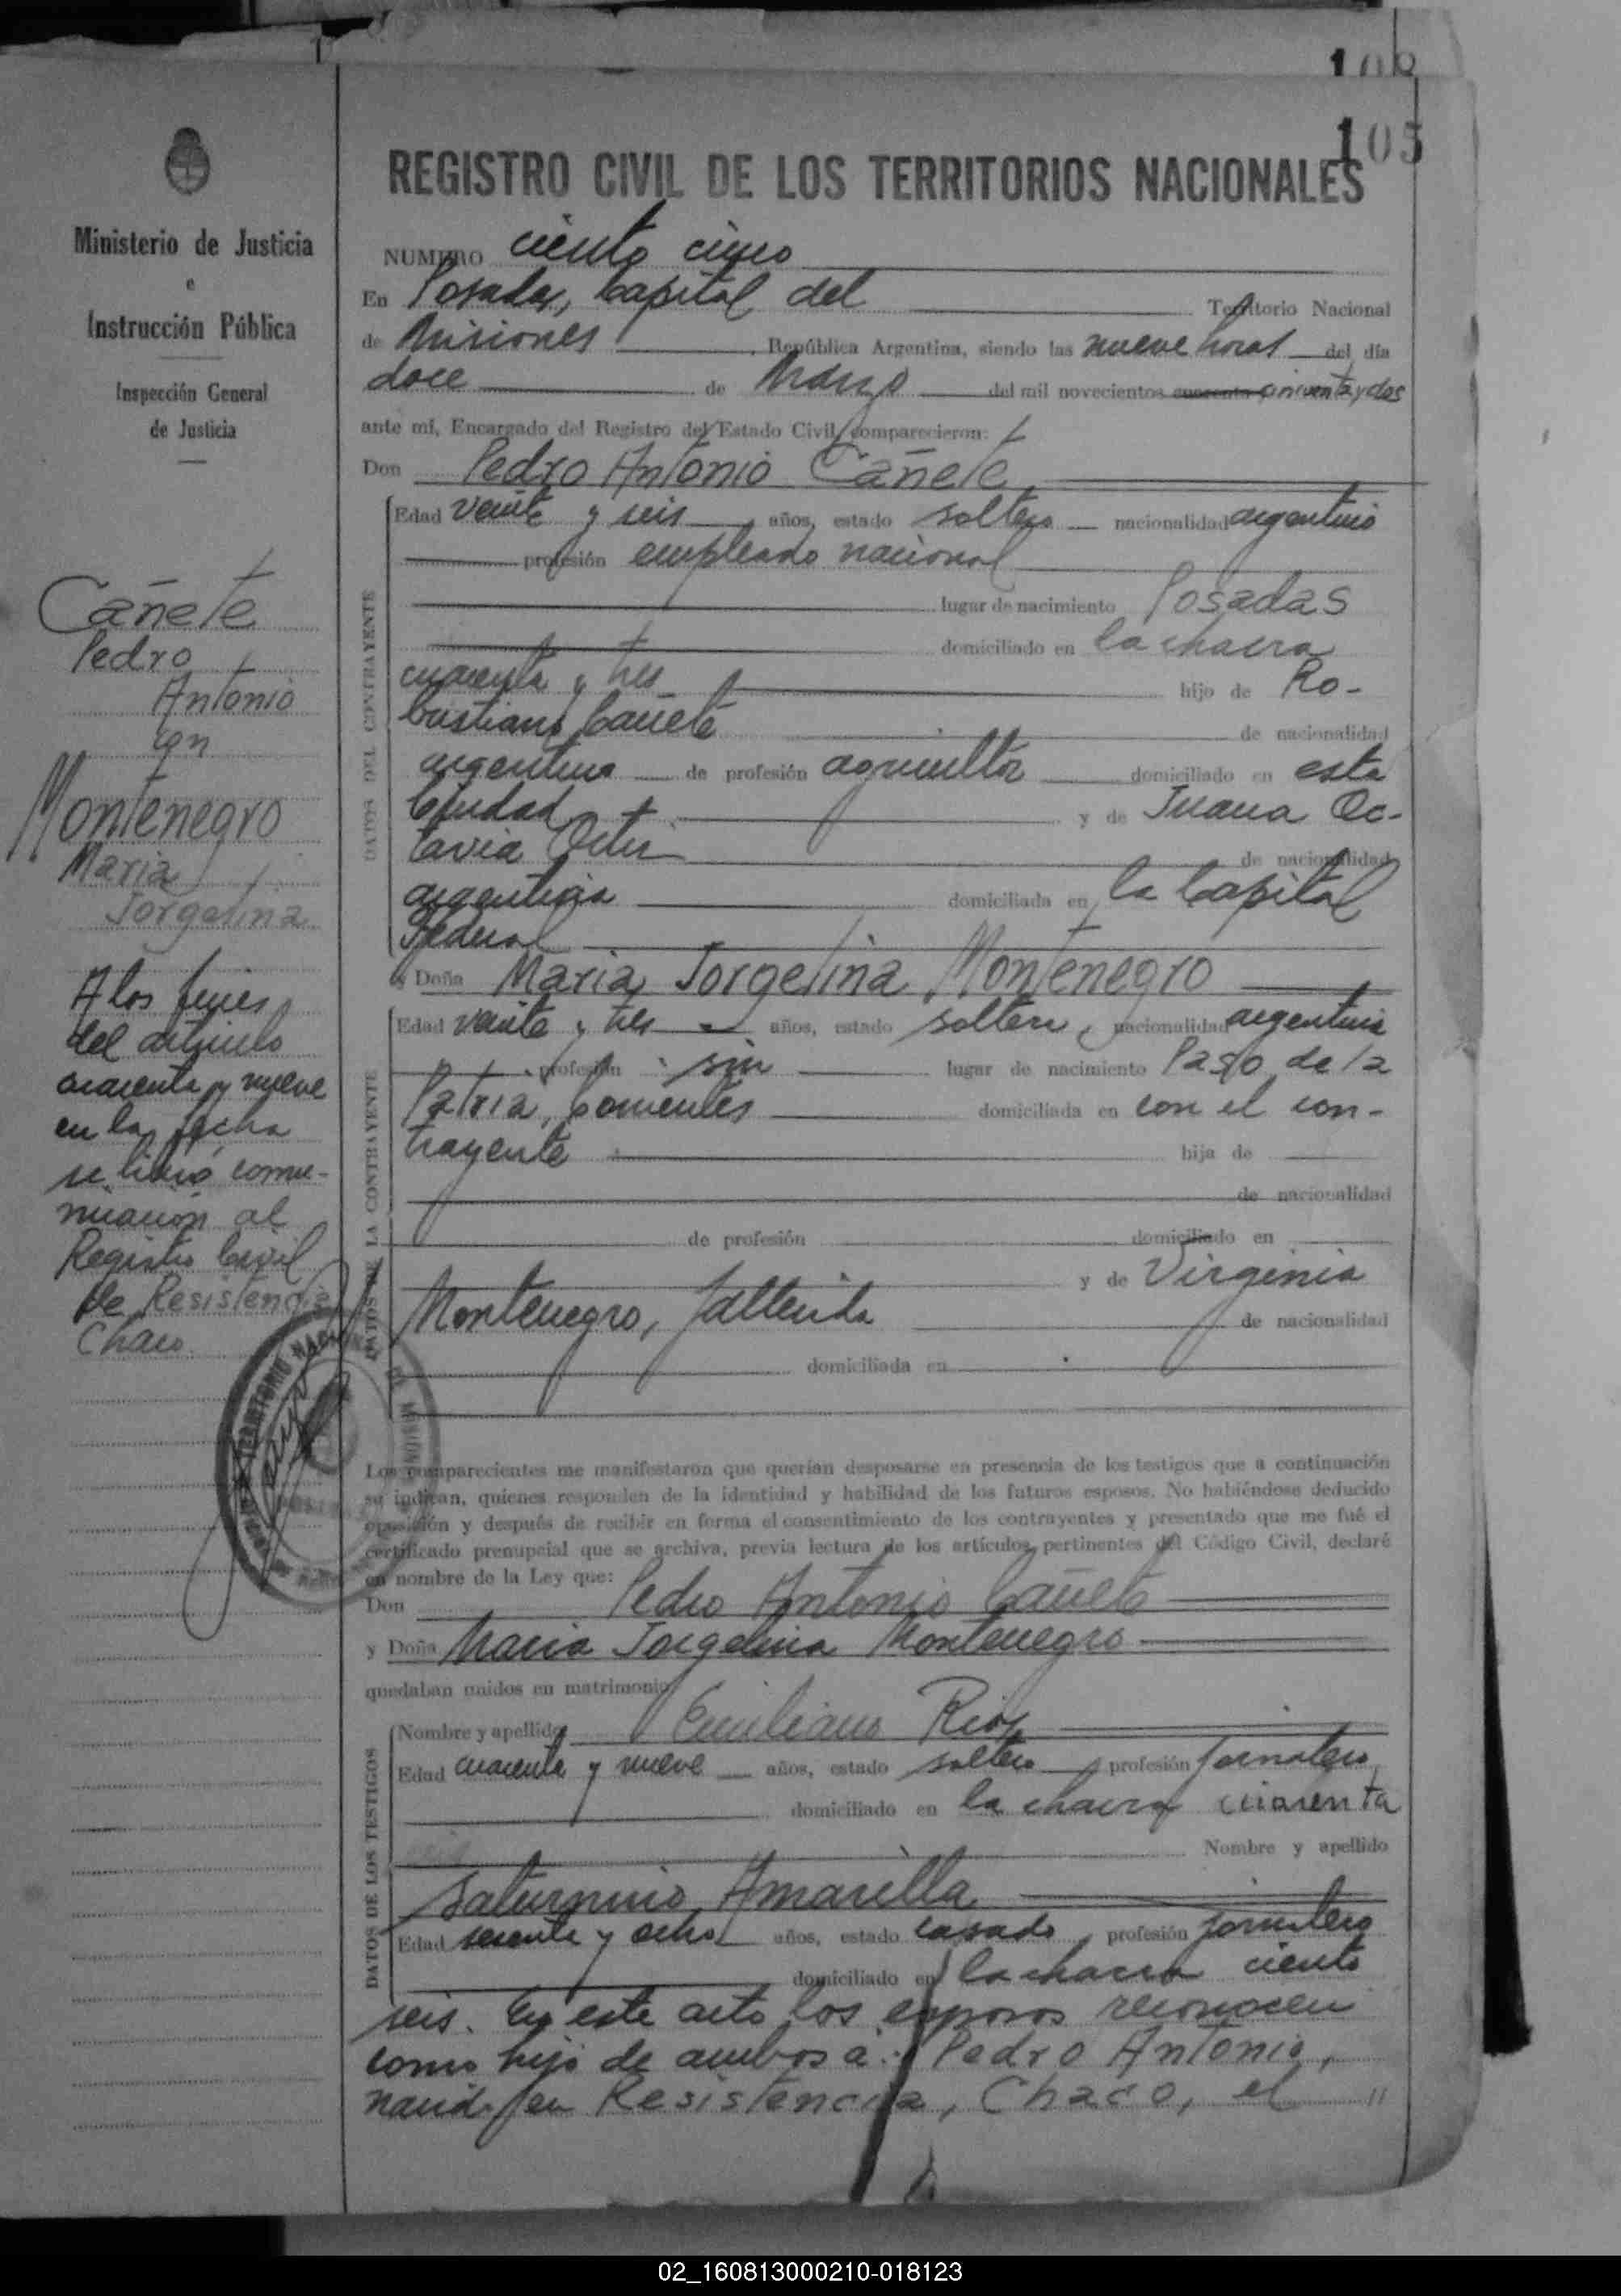 108
105
Ministerio de Justicia
e
Instrucción Pública
Inspección General
de Justicia
Cañete
Pedro
Antonio
con
Montenegro
Maria
Jorgelina
A los fines
del artículo
cuarenta y nueve
en la fecha
se libró comu-
nicación al
Registro Civil
de Resistencia
Chaco
REGISTRO CIVIL DE LOS TERRITORIOS NACIONALES
NUMERO ciento cinco
En Posadas, Capital del Territorio Nacional
de Misiones República Argentina, siendo las nueve horas del día
doce de Marzo del mil novecientos cuarenta cincuenta y dos
ante mí, Encargado del Registro del Estado Civil, comparecieron:
Don Pedro Antonio Cañete
DATOS DEL CONTRAYENTE
Edad veinte y seis años, estado soltero nacionalidad argentino
profesión empleado nacional
lugar de nacimiento Posadas
domiciliado en la chacra
cuarenta y tres hijo de Ro-
bustiano Cañete de nacionalidad
argentina de profesión agricultor domiciliado en esta
Ciudad y de Juana Oc-
tavia de nacionalidad
argentina domiciliada en la Capital
Federal
y Doña Maria Jorgelina Montenegro
DATOS DE LA CONTRAYENTE
Edad veinte y tres años, estado soltera, nacionalidad argentina
profesión sin lugar de nacimiento Paso de la
Patria, Corrientes domiciliada en con el con-
trayente hija de
de nacionalidad
de profesión domiciliado en
y de Virginia
Montenegro, fallecida de nacionalidad
domiciliada en
Los comparecientes me manifestaron que querían desposarse en presencia de los testigos que a continuación
se indican, quienes responden de la identidad y habilidad de los futuros esposos. No habiéndose deducido
oposición y después de recibir en forma el consentimiento de los contrayentes y presentado que me fué el
certificado prenupcial que se archiva, previa lectura de los artículos pertinentes del Código Civil, declaré
en nombre de la Ley que:
Don Pedro Antonio Cañete
y Doña Maria Jorgelina Montenegro
quedaban unidos en matrimonio
DATOS DE LOS TESTIGOS
Nombre y apellido Emiliano Rios
Edad cuarenta y nueve años, estado soltero profesión jornalero
domiciliado en la chacra cuarenta
Nombre y apellido
Saturnino Amarilla
Edad sesenta y ocho años, estado casado profesión jornalero
domiciliado en la chacra ciento
seis. En este acto los esposos reconocen
como hijo de ambos a: Pedro Antonio,
nacido en Resistencia, Chaco, el //
02_160813000210-018123